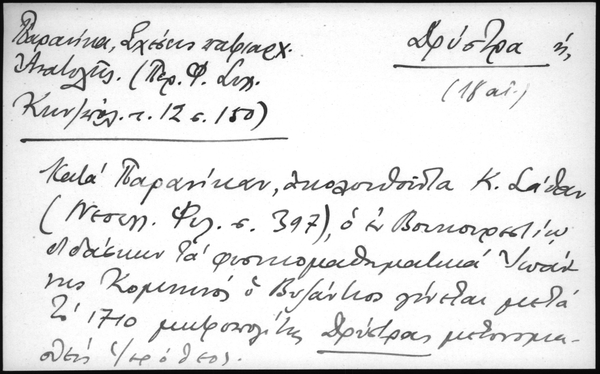 Παρανίκα, Σχέσεις πατριαρχ.
Ἀνατολῆς. (Περ. Φ. Συλ.
Κων/πόλ. τ. 12 σ. 150)
Δρύστρα ἡ,
(18 αἰ.)
Κατά Παρανίκαν, ἀκολουθοῦντα Κ. Σάθαν
(Νεοελλ. Φιλ. σ. 397), ὁ ἐν Βουκουρεστίῳ
διδάσκων τά φυσικομαθηματικά Ἰωάν
νης Κομνηνός ὁ Βυζάντιος γίνεται μετά
τό 1710 μητροπολίτης Δρύστρας μετονομα-
σθείς Ἱερόθεος.